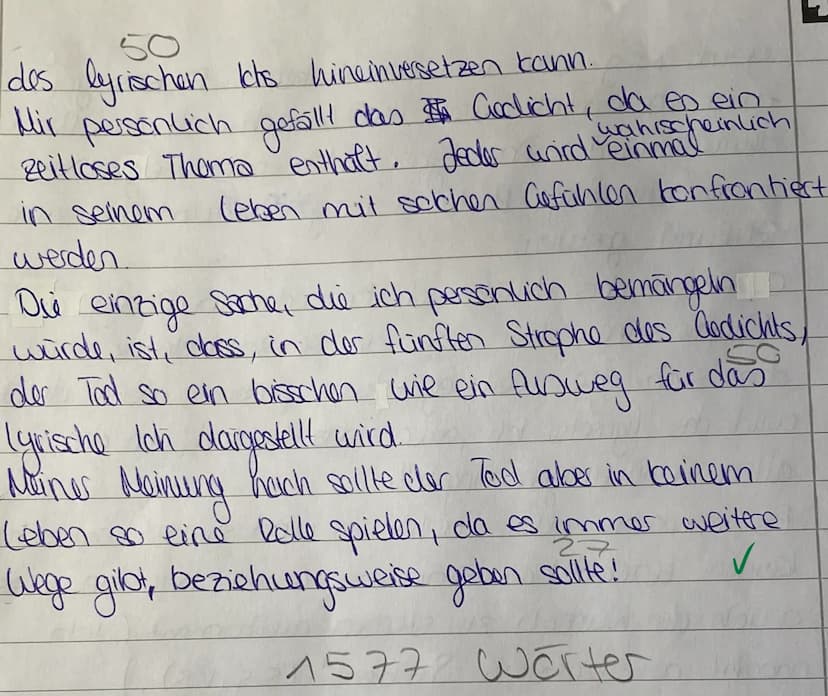 50
des lyrischen Ichs hineinversetzen kann.
Mir persönlich gefällt das Gedicht, da es ein
wahrscheinlich
zeitloses Thema enthält. Jeder wird einmal
in seinem Leben mit solchen Gefühlen konfrontiert
werden.
Die einzige Sache, die ich persönlich bemängeln
würde, ist, dass, in der fünften Strophe des Gedichts,
50
der Tod so ein bisschen wie ein Ausweg für das
lyrische Ich dargestellt wird.
Meiner Meinung nach sollte der Tod aber in keinem
Leben so eine Rolle spielen, da es immer weitere
27
Wege gibt, beziehungsweise geben sollte! ✓
1577 Wörter